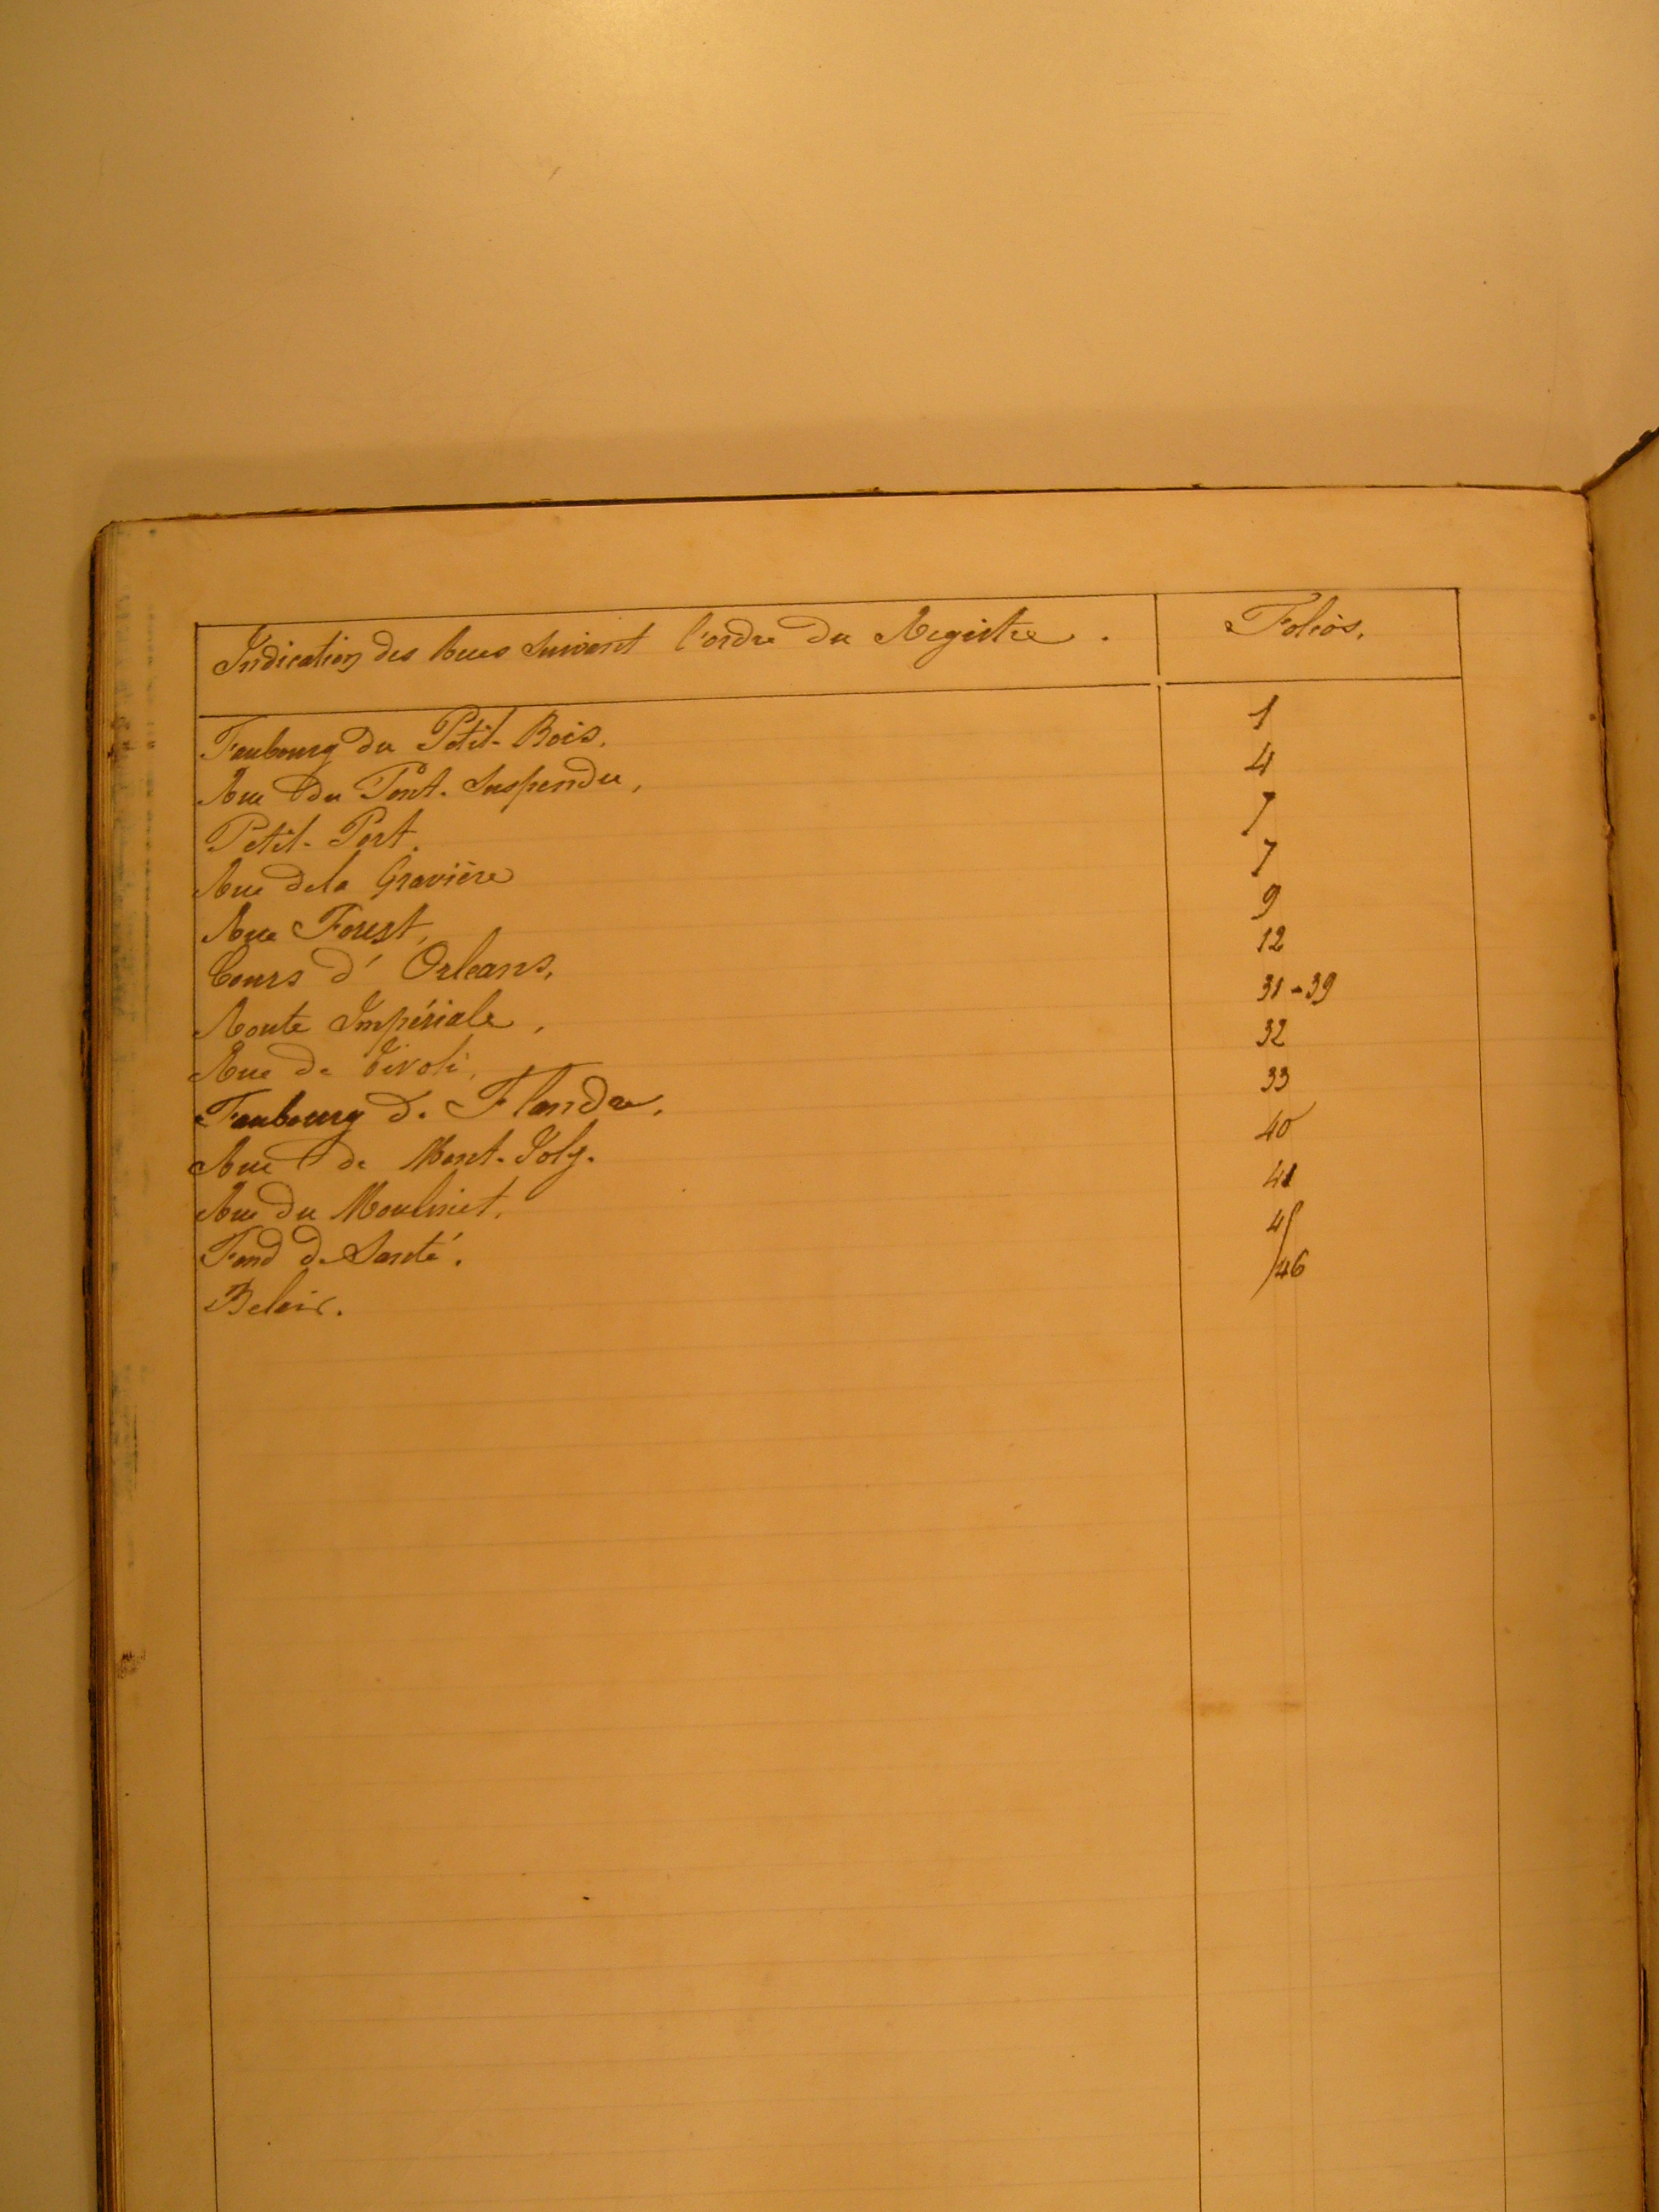 Indication des Rues suivant l'ordre du Registre. Folios.
Faubourg du Petit-Bois. 1
Rue du Pont-Suspendu, 4
Petit-Port. 7
Rue de la Gravière 7
Rue Forest, 9
Cours d'Orleans, 12
Route Impériale, 31-39
Rue de Tivoli, 32
Faubourg de Flandre, 33
Rue de Mont-Joly. 40
Rue du Moulinet. 41
Fond de Santé.
Belair. 46